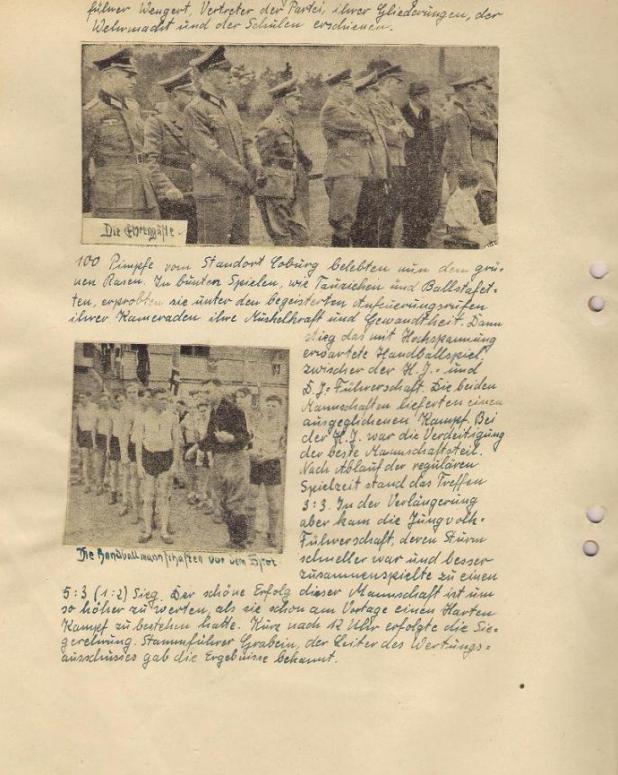 führer Wengert, Vertreter der Partei ihrer Gliederungen, der
Wehrmacht und der Schulen erschienen.
Die Ehrengäste.
100 Pimpfe vom Standort Coburg belebten nun den grü-
nen Rasen. In bunten Spielen, wie Tauziehen und Ballstafet-
ten, erprobten sie unter den begeisterten Anfeuerungsrufen
ihrer Kameraden ihre Muskelkraft und Gewandtheit. Dann
stieg das mit Hochspannung
erwartete Handballspiel
zwischer der H.J.- und
D.J.-Führerschaft. Die beiden
Mannschaften lieferten einen
ausgeglichenen Kampf. Bei
der H.J. war die Verdeitigung
der beste Mannschaftsteil.
Nach Ablauf der regulären
Spielzeit stand das Treffen
3:3. In der Verlängerung
aber kam die Jungvolk-
Führerschaft, deren Sturm
schneller war und besser
zusammenspielte zu einen
Die Handballmannschaften vor dem Spiel
5:3 (1:2) Sieg. Der schöne Erfolg dieser Mannschaft ist um
so höher zu werten, als sie schon am Vortage einen Harten
Kampf zu bestehen hatte. Kurz nach 12 Uhr erfolgte die Sie-
gerehrung. Stammführer Grabein, der Leiter des Wertungs-
ausschusses gab die Ergebnisse bekannt.